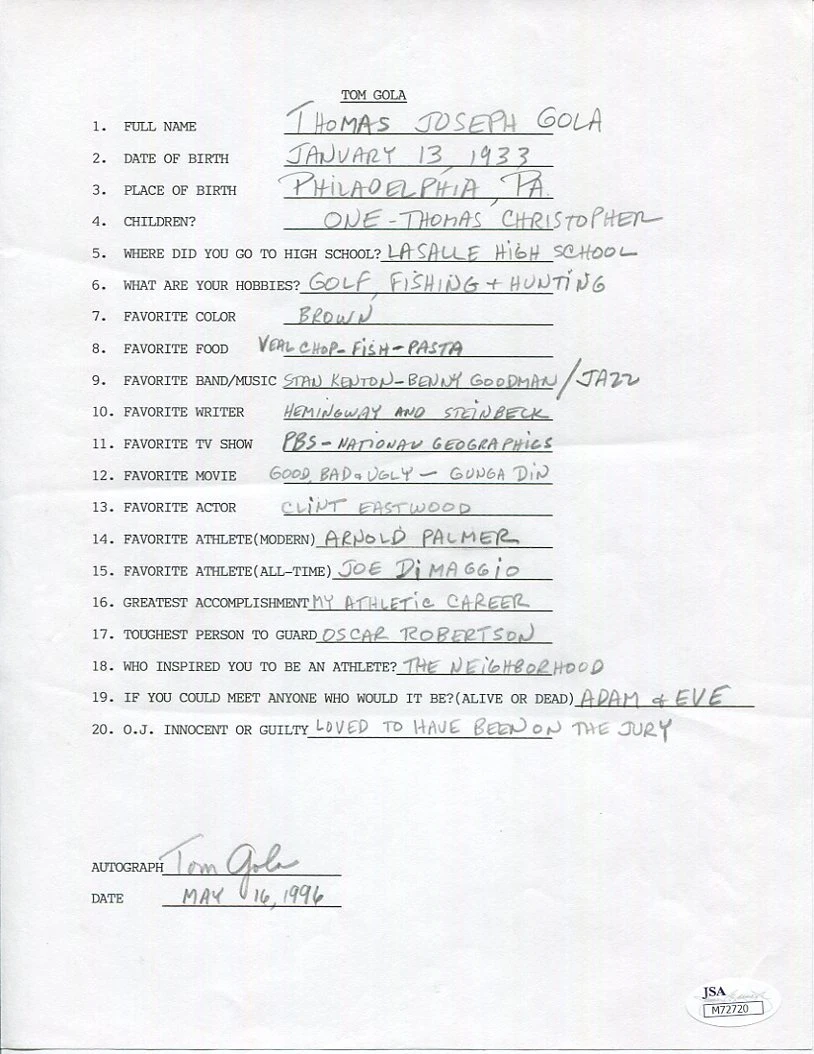 TOM GOLA
1. FULL NAME THOMAS JOSEPH GOLA
2. DATE OF BIRTH JANUARY 13, 1933
3. PLACE OF BIRTH PHILADELPHIA, PA.
4. CHILDREN? ONE - THOMAS CHRISTOPHER
5. WHERE DID YOU GO TO HIGH SCHOOL? LASALLE HIGH SCHOOL
6. WHAT ARE YOUR HOBBIES? GOLF, FISHING + HUNTING
7. FAVORITE COLOR BROWN
8. FAVORITE FOOD VEAL CHOP - FISH - PASTA
9. FAVORITE BAND/MUSIC STAN KENTON - BENNY GOODMAN / JAZZ
10. FAVORITE WRITER HEMINGWAY AND STEINBECK
11. FAVORITE TV SHOW PBS - NATIONAL GEOGRAPHICS
12. FAVORITE MOVIE GOOD, BAD & UGLY - GUNGA DIN
13. FAVORITE ACTOR CLINT EASTWOOD
14. FAVORITE ATHLETE(MODERN) ARNOLD PALMER
15. FAVORITE ATHLETE(ALL-TIME) JOE DiMAGGIO
16. GREATEST ACCOMPLISHMENT MY ATHLETIC CAREER
17. TOUGHEST PERSON TO GUARD OSCAR ROBERTSON
18. WHO INSPIRED YOU TO BE AN ATHLETE? THE NEIGHBORHOOD
19. IF YOU COULD MEET ANYONE WHO WOULD IT BE?(ALIVE OR DEAD) ADAM & EVE
20. O.J. INNOCENT OR GUILTY LOVED TO HAVE BEEN ON THE JURY
AUTOGRAPH Tom Gola
DATE MAY 16, 1996
JSA
M72720